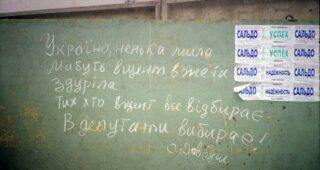 Україно, ненька мила
Мабуть вщент вже ти
Здуріла
Тих хто вщент все відбирає
В депутати вибирає!
САЛЬДО УСПЕХ САЛЬДО
САЛЬДО УСПЕХ САЛЬДО
САЛЬДО НАДЕЖНОСТЬ САЛЬДО
САЛЬДО НАДЕЖНОСТЬ САЛЬДО